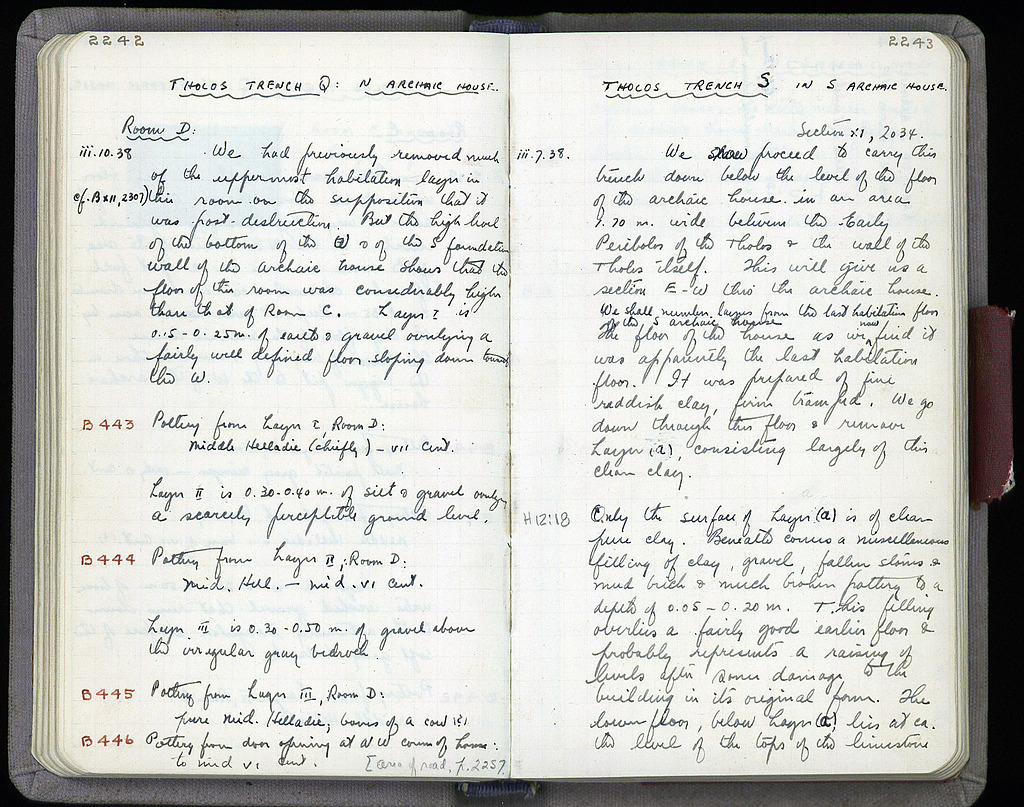 2242
THOLOS TRENCH Q: N ARCHAIC HOUSE.
Room D:
iii.10.38 We had previously removed much
of the uppermost habitation layer in
cf. B XII, 2307) this room on the supposition that it
was post-destruction. But the high level
of the bottom of the & of the S foundation
wall of the archaic house shows that the
floor of this room was considerably higher
than that of Room C. Layer I is
0.15-0.25m. of earth & gravel overlying a
fairly well defined floor sloping down toward
the W.
B 443 Pottery from Layer I, Room D:
Middle Helladic (chiefly) – VII cent.
Layer II is 0.30-0.40 m. of silt & gravel overlying
a scarcely perceptible ground level.
B 444 Pottery from Layer II, Room D.
Mid. Hell. – mid. VI cent.
Layer III is 0.30-0.50 m. of gravel above
the irregular gray bedrock.
B 445 Pottery from Layer III, Room D:
pure Mid. Helladic, bones of a cow
B 446 Pottery from door opening at NW corner of house:
to mid VI cent. [area of road, p. 2257.
2243
THOLOS TRENCH S IN S ARCHAIC HOUSE.
Section XI, 2034.
iii.7.38. We proceed to carry this
trench down below the level of the floor
of the archaic house in an area
1.70 m. wide between the Early
Peribolos of the Tholos & the wall of the
Tholos itself. This will give us a
section E-W thro the archaic house.
We shall number layers from the last habitation floor
of the S archaic house
The floor of the house as we now find it
was apparently the last habitation
floor. It was prepared of fine
reddish clay, firm tramped. We go
down through this floor & remove
Layer (a), consisting largely of this
clean clay.
H 12:18 Only the surface of Layer (a) is of clean
pure clay. Beneath comes a miscellaneous
filling of clay, gravel, fallen stones &
mud brick & much broken pottery to a
depth of 0.05-0.20 m. This filling
overlies a fairly good earlier floor &
probably represents a raising of
levels after some damage to the
building in its original form. The
lower floor, below Layer (a), lies at ca.
the level of the tops of the limestone